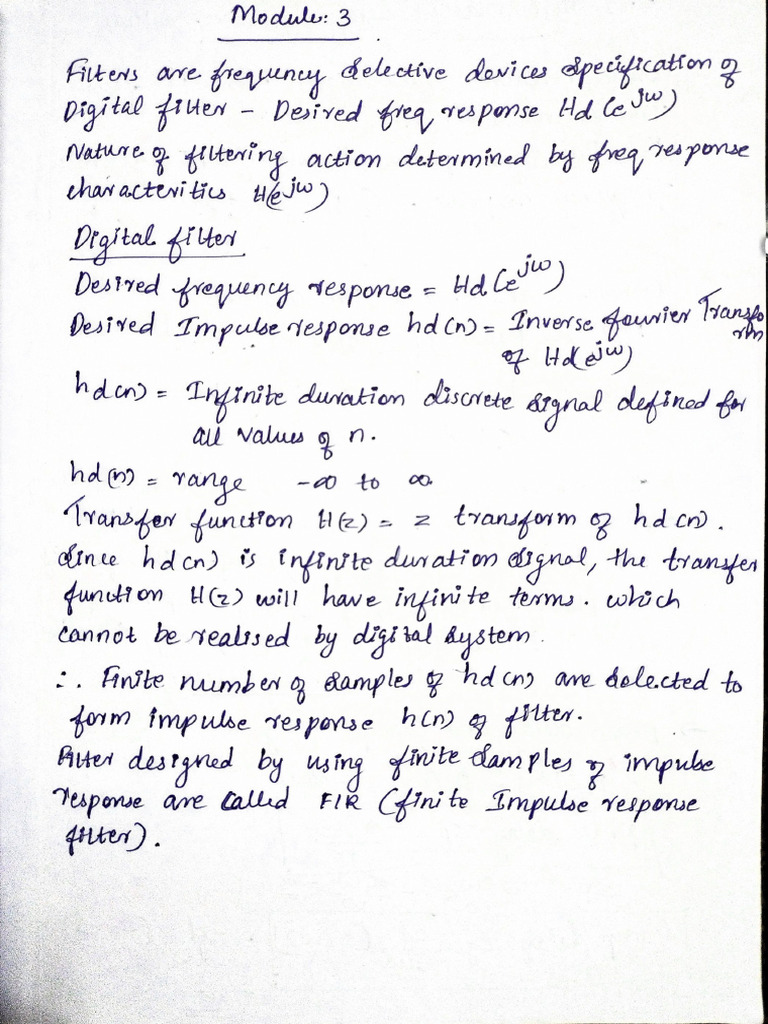 Module: 3
Filters are frequency selective devices specification of
Digital filter - Desired freq response Hd(e^jω)
Nature of filtering action determined by freq response
characteritics H(e^jω)
Digital filter
Desired frequency response = Hd(e^jω)
Desired Impulse response hd(n) = Inverse fourier Transfo
rm
of Hd(e^jω)
hd(n) = Infinite duration discrete signal defined for
all values of n.
hd(n) = range -∞ to ∞
Transfer function H(z) = z transform of hd(n).
Since hd(n) is infinite duration signal, the transfer
function H(z) will have infinite terms. which
cannot be realised by digital system.
∴ Finite number of samples of hd(n) are selected to
form impulse response h(n) of filter.
Filter designed by using finite samples of impulse
response are called FIR (finite Impulse response
filter).